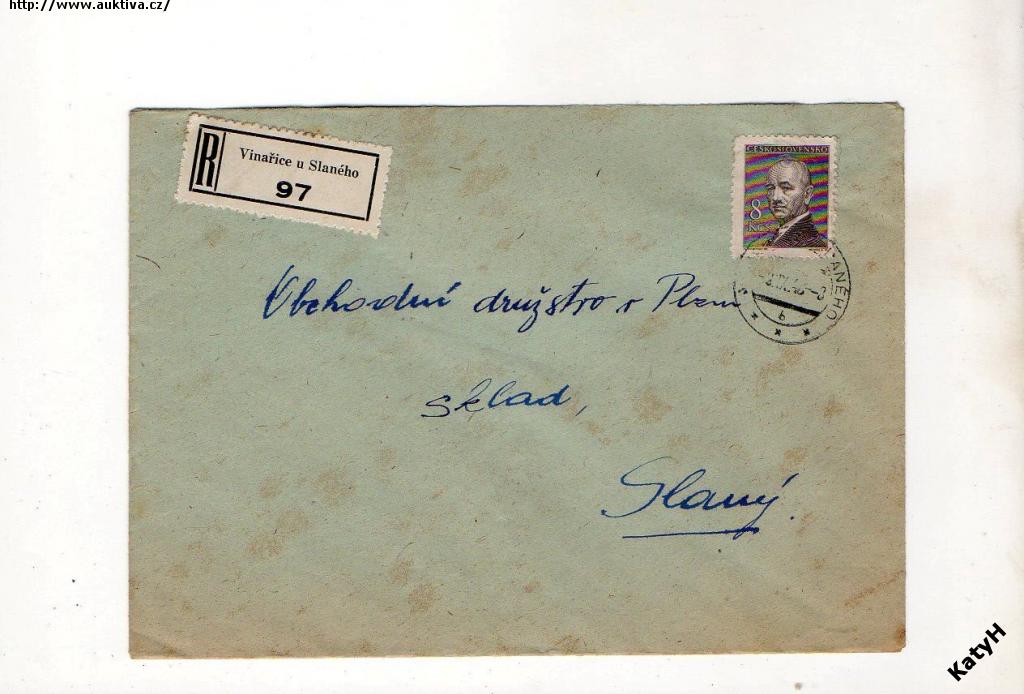 http://www.auktiva.cz/
R
Vinařice u Slaného
97
ČESKOSLOVENSKO
8
KČS
SLANÉHO
b
Obchodní družstvo v Plzni
sklad,
Slaný.
KatyH